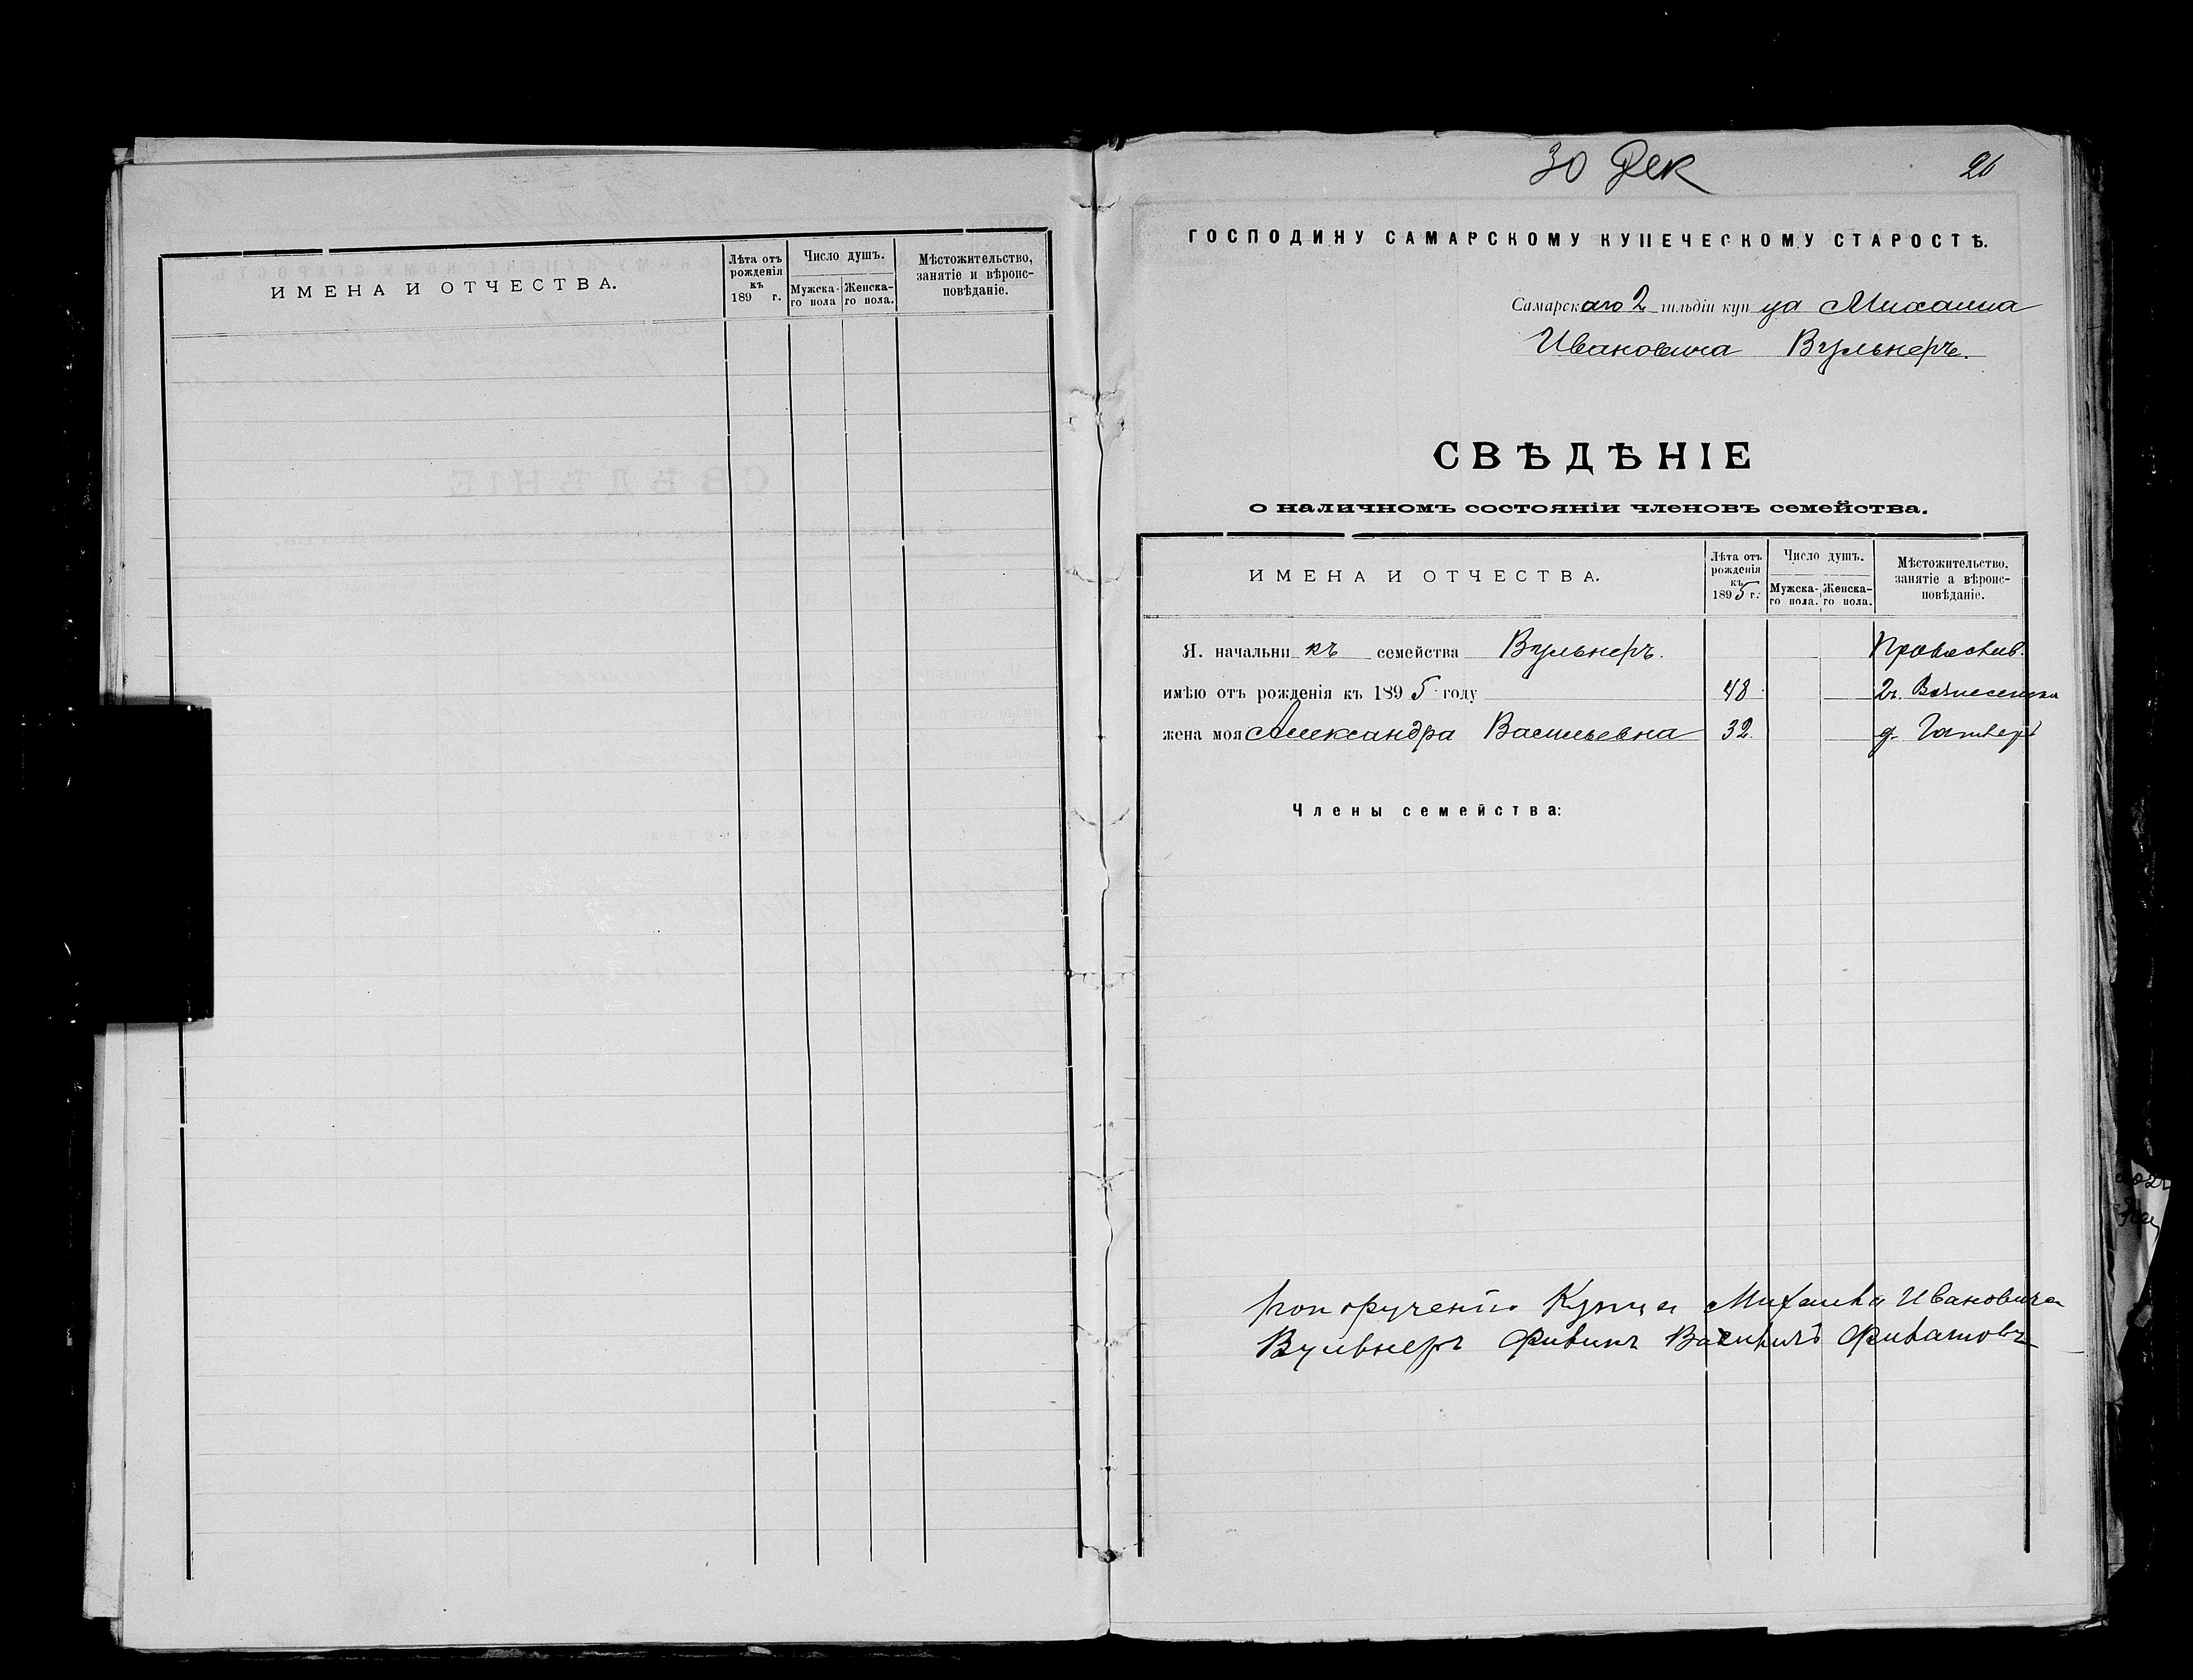 ИМЕНА И ОТЧЕСТВА.
Лѣта отъ рожденія къ 189 г.
Число душъ.
Мужска-го пола
Женска-го пола.
Мѣстожительство, занятіе и вѣроис-повѣданіе.
30 Дек
26
ГОСПОДИНУ САМАРСКОМУ КУПЕЧЕСКОМУ СТАРОСТѢ.
Самарскаго 2 гильдіи купца Михаила
Ивановича Вульнеръ.
СВѢДѢНІЕ
о наличномъ состояніи членовъ семейства.
ИМЕНА И ОТЧЕСТВА.
Лѣта отъ рожденія къ 1895 г.
Число душъ.
Мужска-го пола.
Женска-го пола.
Мѣстожительство, занятіе а вѣроис-повѣданіе.
Я. начальникъ семейства Вульнеръ. Православ.
имѣю отъ рожденія къ 1895 году 48 2ч. Вознесенская
жена моя Александра Васильевна 32. д.
Члены семейства:
Купца Михаила Ивановича
Вульнеръ Василій Филатовъ